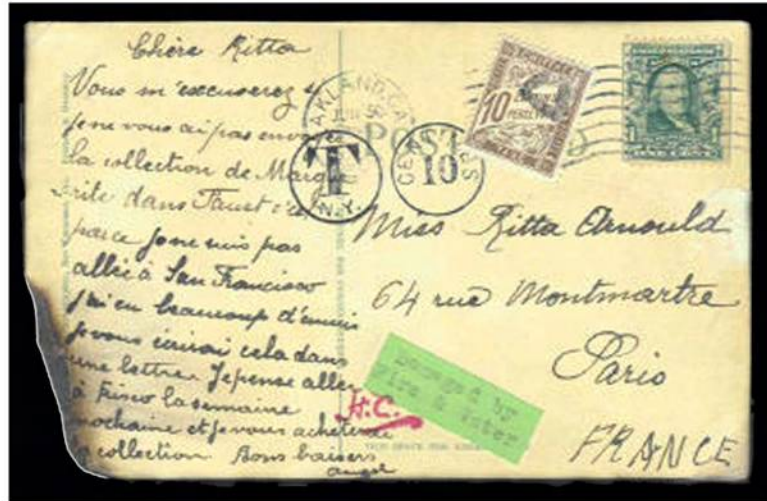 Chère Ritta
Vous m'excuserez si
je ne vous ai pas envoyé
la collection de Margue
rite dans Faust c'est
parce je ne suis pas
allée à San Francisco
j'ai eu beaucoup d'ennuis
je vous écrirai cela dans
une lettre. Je pense aller
à Frisco la semaine
prochaine et je vous achèterai
la collection Bons baisers
OAKLAND, CA
POST
T
N.Y.
CENTIMES
10
10
Miss Ritta Arnould
64 rue Montmartre
Paris
FRANCE
Damaged by
Fire & Water
H.C.